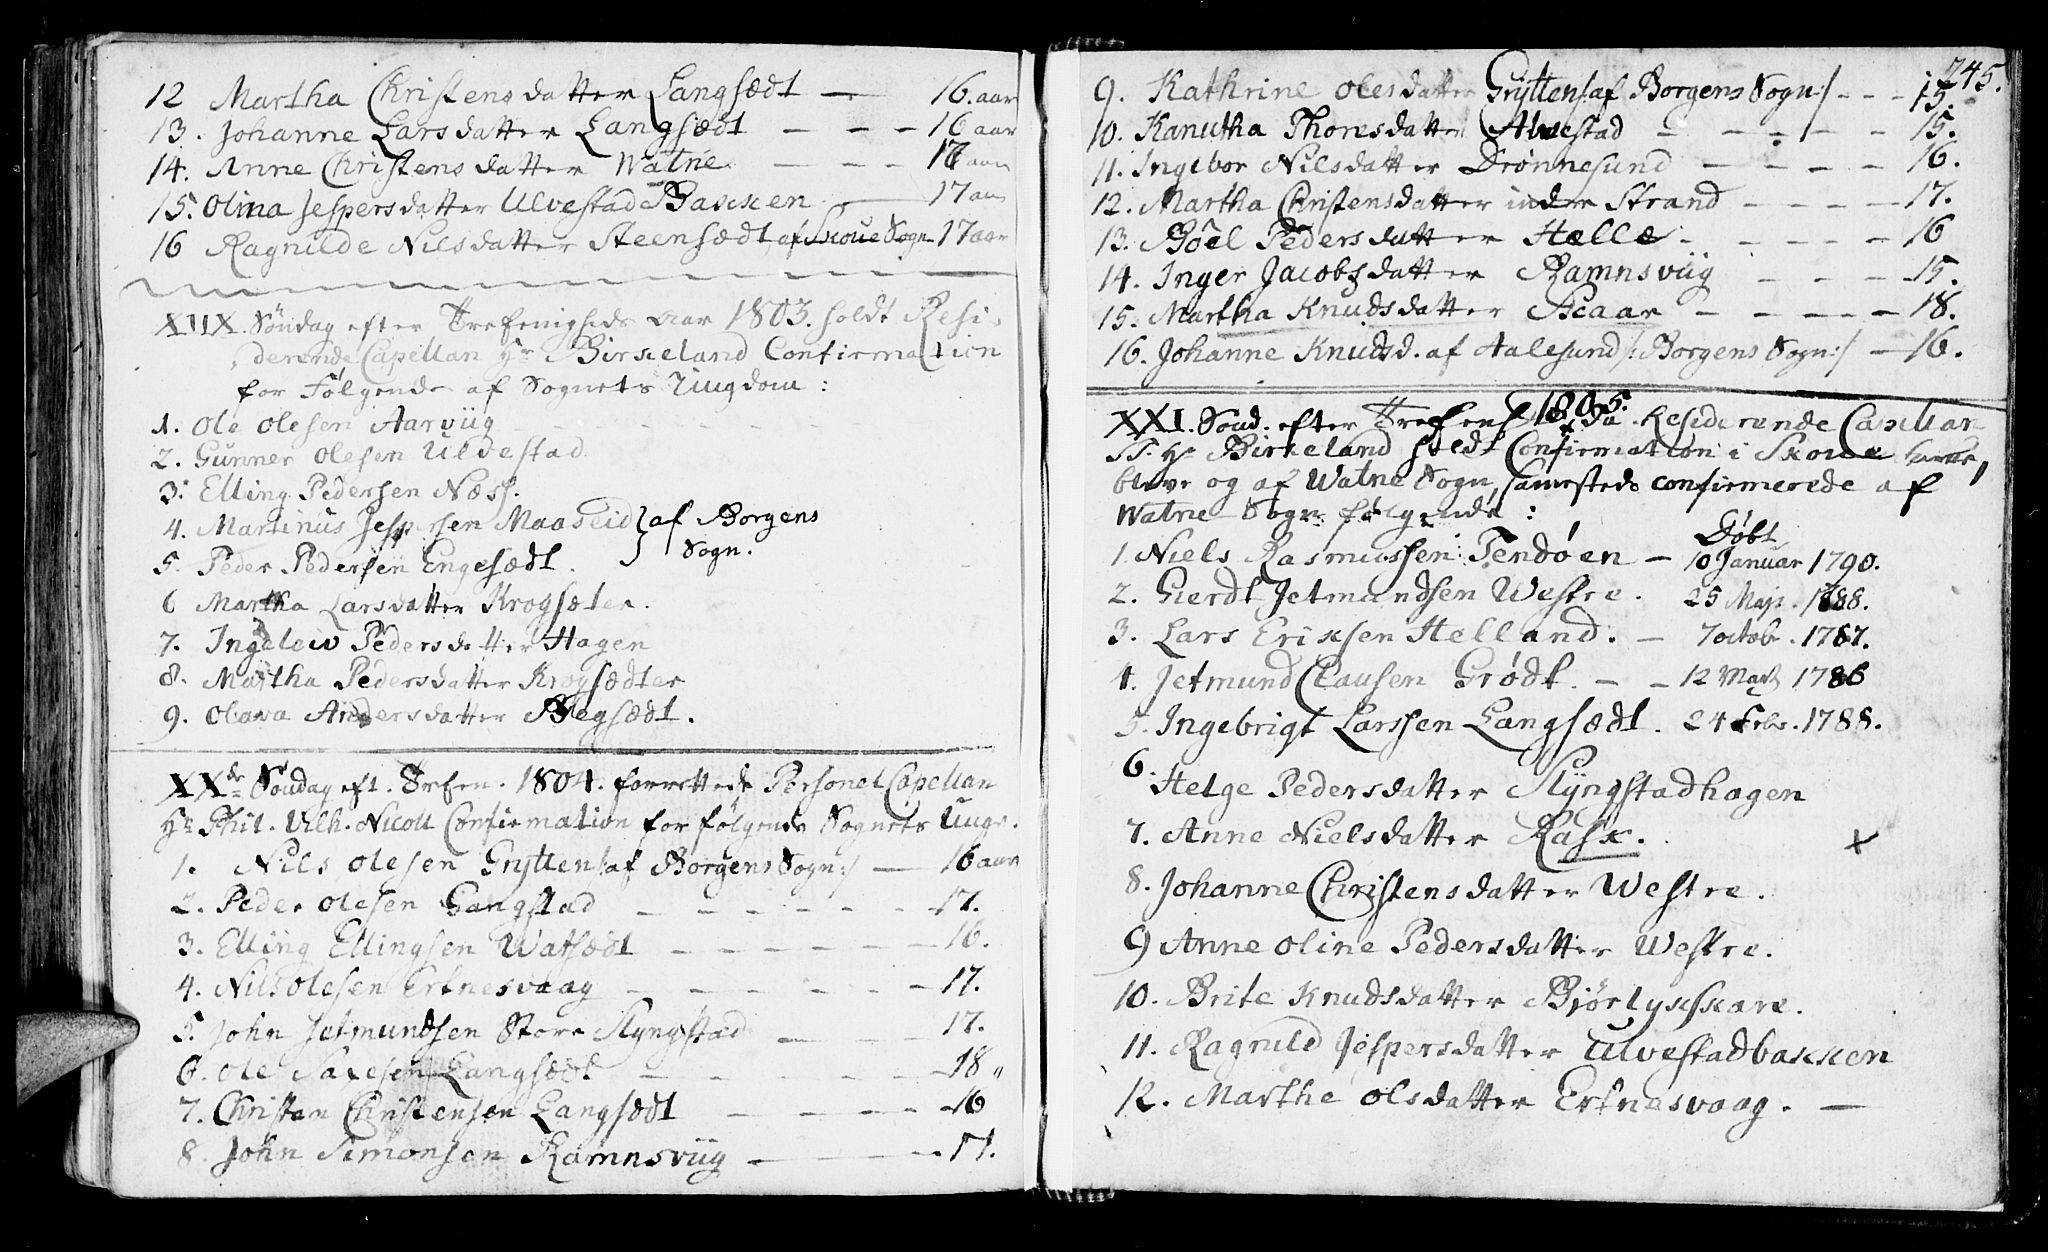 12 Martha Christensdatter Langsædt — 16. aar
13. Johanne Larsdatter Langsædt — — — 16 aar
14. Anne Christensdatter Watne — — — 16 aar
15. Olina Jespersdatter Ulvestad Bakken — 17 aar
16 Ragnilde Nilsdatter Steensædt af Skoue Sogn 17 aar
XIIX. Søndag efter Trefenigheds aar 1803. holdt Resi-
derende Capellan Hr Birkeland Confirmation
for Følgende af Sognets Ungdom:
1. Ole Olesen Aarviig
2. Gunner Olesen Ulvestad
3. Elling Pedersen Næss.
4. Martinus Jespersen Maaseid } af Borgens
5. Peder Pedersen Engesædt. } Sogn.
6 Martha Larsdatter Krogsæter.
7. Ingelew Pedersdatter Hagen
8. Martha Pedersdatter Krogsædter
9. Olava Andersdatter Blegsædt.
XXde Søndag eft. Trefen. 1804. forrettede Personel Capellan
Hr Phil. Vilh. Nicoll Confirmation for følgende Sognets Unge.
1. Nils Olesen Grytten /:af Borgens Sogn:/ — 16 aar
2. Peder Olesen Gangstad — — — 17.
3. Elling Ellingsen Watsædt — — — 16.
4. Nils Olesen Erknesvaag — — — 17.
5. John Jetmundsen Store Slyngstad — — 17.
6. Ole Saxesen Langsædt — — — 18 "
7. Christen Christensen Langsædt — — — 16
8. John Simonsen Ramnsviig — — — 17.
245.
9. Kathrine Olesdatter Grytten /:af Borgens Sogn:/ - - - 15.
10. Kanutha Thoresdatter Alvestad — — — 15.
11. Ingebor Nilsdatter Drønnesund — — — 16.
12. Martha Christensdatter indre Strand — — — 17.
13. Boel Pedersdatter Helle — — — 16
14. Inger Jacobsdatter Ramnsviig — — — 15.
15. Martha Knudsdatter Skaar — — — 18.
16. Johanne Knudsd. af Aalesund /:Borgens Sogn:/ — 16.
XXI. Sønd. efter Trefenh. 1805. da Residerende Capellan
Hr Birkeland holdt Confirmation i Skoue
bleve og af Watne Sogn samesteds confirmerede af
Watne Sogn følgende:
Døbt
1 Niels Rasmussen Tendøen — 10 Januar 1790.
2. Gierdt Jetmundsen Westre. 25 Maji. 1788.
3. Lars Eriksen Helland. — 7 octobr. 1787.
4. Jetmund Clausen Grødt. — — 12 Marts 1786
5. Ingebrigt Larssen Langsædt. 24 Febr. 1788.
6. Helge Pedersdatter Slyngstadhagen
7. Anne Nielsdatter Rask. x
8. Johanne Christensdatter Westre.
9 Anne Oline Pedersdatter Westre.
10. Brite Knudsdatter Bjørlykskare.
11. Ragnild Jespersdatter Ulvestadbakken
12. Marthe Olsdatter Erknesvaag. —